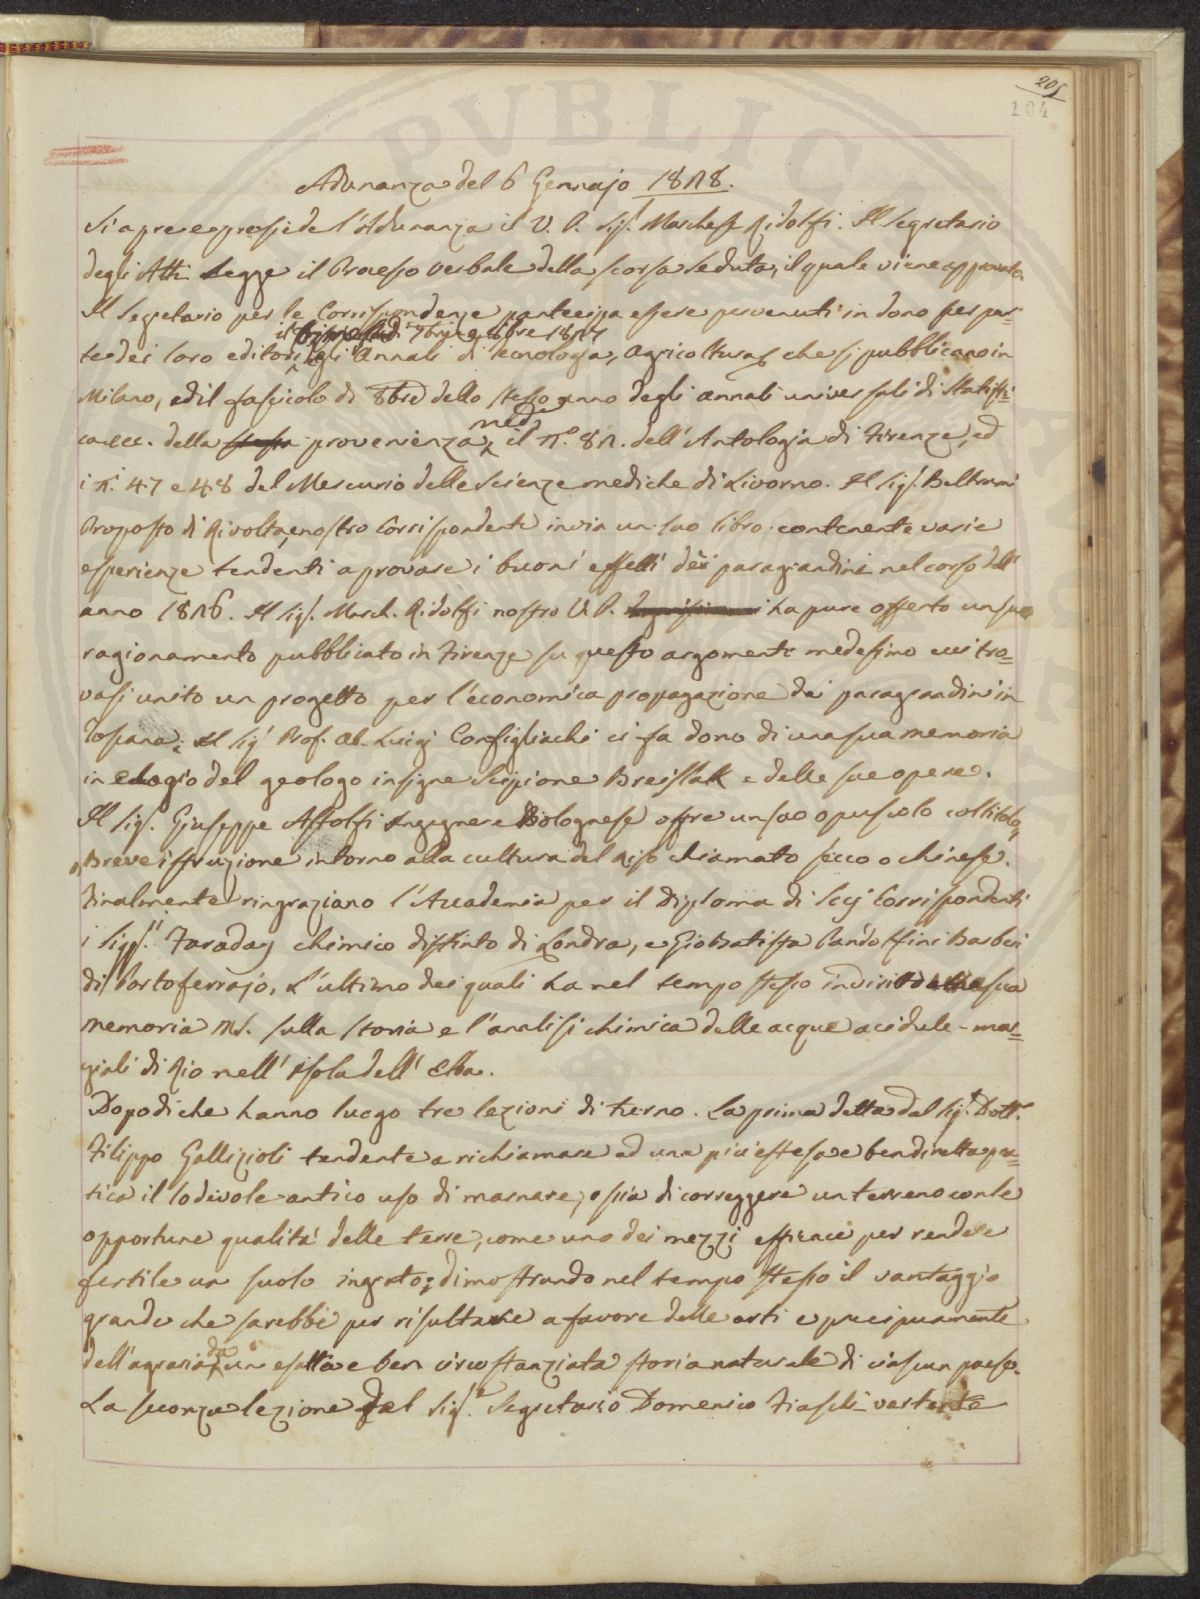 205
104
Adunanza del 6 Gennajo 1828.
Si apre e presiede l'Adunanza il V. P. Sig.r Marchese Ridolfi. Il Segretario
degli Atti Legge il Processo verbale della scorsa Seduta, il quale viene approvato.
Il Segretario per le Corrispondenze partecipa essere pervenuti in dono per par=
il 7bre e 8bre 1827
te dei loro editori gli Annali di Tecnologia, Agricoltura che si pubblicano in
Milano, ed il fascicolo di 8bre dello stesso anno degli annali universali di Statisti=
ca ecc. della stessa provenienza, il N.° 82. dell'Antologia di Firenze, ed
i N.i 47 e 48 del Mercurio delle Scienze mediche di Livorno. Il Sig.r Beltrami
Proposto di Rivolta, e nostro Corrispondente invia un suo libro contenente varie
esperienze tendenti a provare i buoni effetti dei paragrandini nel corso dell'
anno 1826. Il Sig.r March. Ridolfi nostro V. P. ha pure offerto un suo
ragionamento pubblicato in Firenze su questo argomento medesimo cui tro=
vasi unito un progetto per l'economica propagazione dei paragrandini in
Toscana; Il Sig.r Prof. Ab. Luigi Configliachi ci fa dono di una sua memoria
in elogio del geologo insigne Scipione Breislak e delle sue opere.
Il Sig.r Giuseppe Astolfi Ingegnere Bolognese offre un suo opuscolo col titolo,
„Breve istruzione intorno alla cultura del Riso chiamato secco o chinese.
Finalmente ringraziano l'Accademia per il Diploma di Socj Corrispondenti
i Sigg.ri Faraday chimico distinto di Londra, e Gio Batista Pandolfini Barberi
di Portoferrajo, L'ultimo dei quali ha nel tempo stesso sua
memoria MS. sulla storia e l'analisi chimica delle acque acidule-mar=
ziali di Rio nell'Isola dell'Elba.
Dopo di che hanno luogo tre lezioni di turno. La prima detta dal Sig.r Dott.r
Filippo Gallizioli tendente a richiamare ad una più estesa e ben diretta pra=
tica il lodevole antico uso di marnare, ossia di correggere un terreno con le
opportune qualità delle terre, come uno dei mezzi efficaci per rendere
fertile un suolo ingrato; dimostrando nel tempo stesso il vantaggio
grande che sarebbe per risultare a favore delle arti e precipuamente
dell'agraria da un esatta e ben circostanziata storia naturale di ciascun paese.
La seconda lezione del Sig.r Segretario Domenico vertente